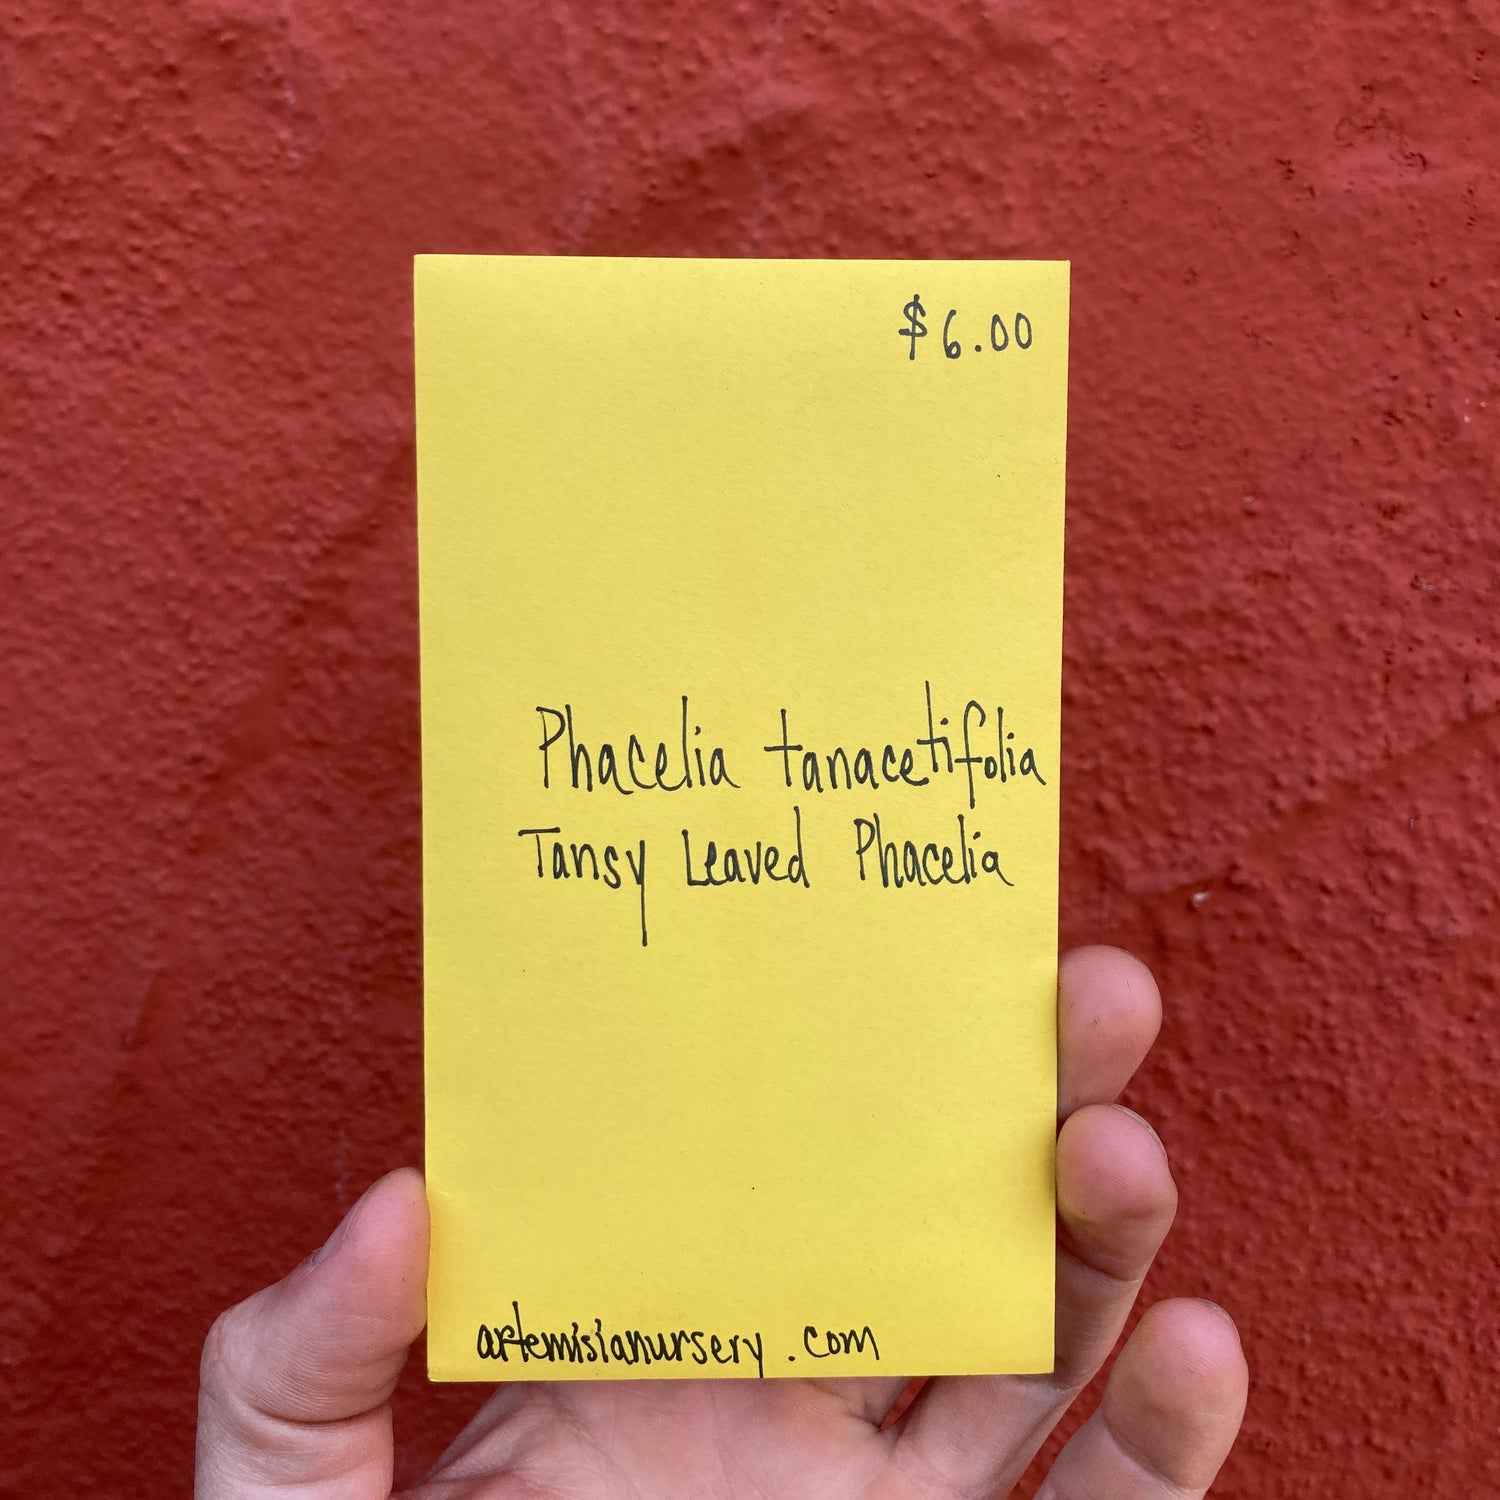 $6.00
Phacelia tanacetifolia
Tansy Leaved Phacelia
artemisianursery.com